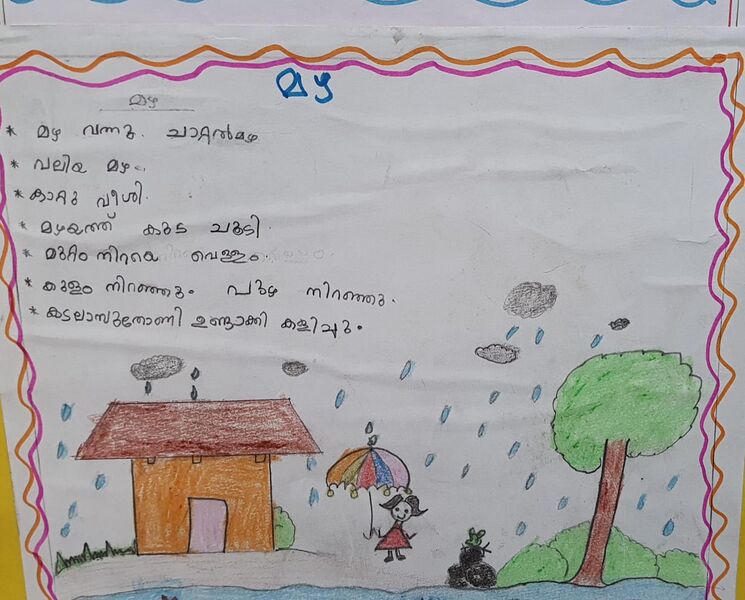 മഴ
മഴ
* മഴ വന്നു. ചാറ്റൽമഴ
* വലിയ മഴ.
* കാറ്റു വീശി.
* മഴയത്ത് കുട ചൂടി.
* മുറ്റം നിറയെ വെള്ളം.
* കുളം നിറഞ്ഞു. പുഴ നിറഞ്ഞു.
* കടലാസുതോണി ഉണ്ടാക്കി കളിച്ചു.